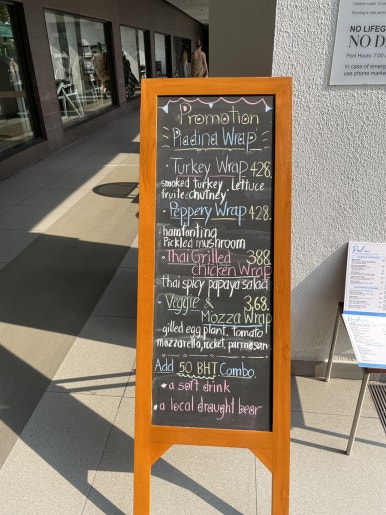 Promotion
Piadina Wrap
• Turkey Wrap 428.
smoked turkey, Lettuce
fruite chutney
• Peppery Wrap 428.
hamfonting
Pickled mushroom
• Thai Grilled 388
chicken Wrap
thai spicy papaya salad
• Veggie & 3,68.
Mozza Wrap
gilled egg plant, tomato
mozzarella, rocket, parmesan
Add 50 BHT Combo.
* a soft drink
* a local draught bear
Children under 12 years
NO LIFEG
NO D
Pool Hours: 7:00
In case of emerg
use phone market